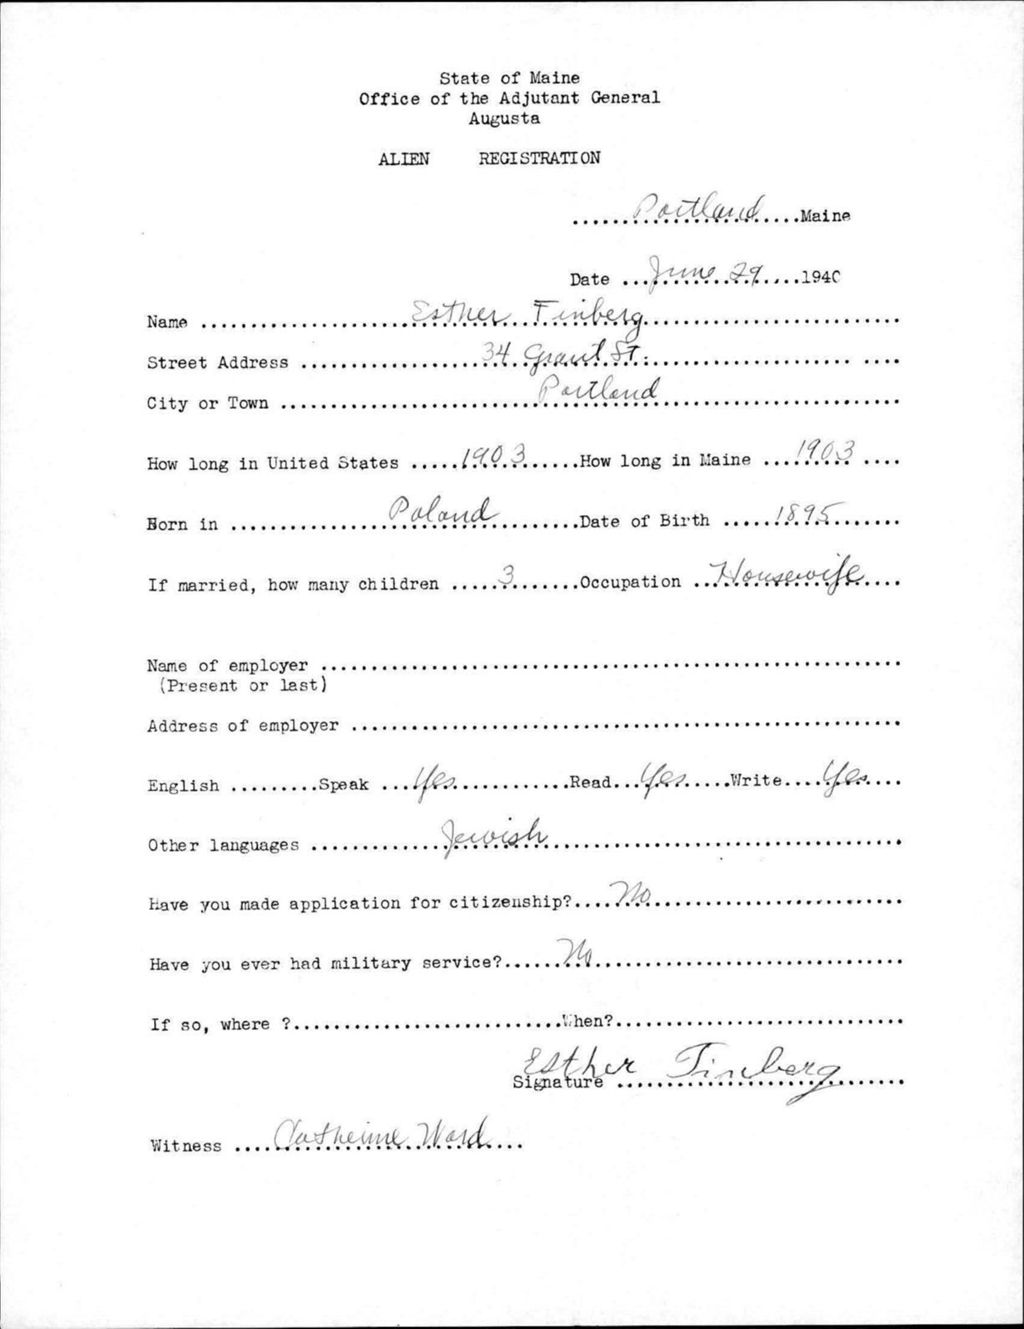 State of Maine
Office of the Adjutant General
Augusta
ALIEN REGISTRATION
......Portland.....Maine
Date ...June 29....1940
Name ....................Esther Finberg.........................
Street Address ..................34 Grant St......................... ....
City or Town .........................Portland........................
How long in United States .....1903......How long in Maine ...1903 ....
Born in ...............Poland.........Date of Birth .....1895.......
If married, how many children .....3.......Occupation ..Housewife....
Name of employer .........................................................
(Present or last)
Address of employer ......................................................
English .........Speak ...Yes...........Read...Yes.....Write....Yes...
Other languages .............Jewish..................................
Have you made application for citizenship?....No.........................
Have you ever had military service?......No..............................
If so, where ?...........................When?............................
Esther Finberg
Signature ............................
Witness ....Catherine Ward...